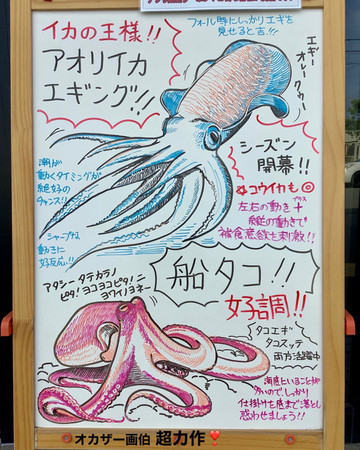 イカの王様!!
アオリイカ
エギング!!
フォール時にしっかりエギを
見せると吉!!
エギー
オレークゥー
シーズン
開幕!!
潮が
動くタイミングが
絶好の
チャンス!!
シャープな
動きに
好反応!!
コウイカも◎
左右の動き プラス +
縦の動きで
捕食意欲を刺激!!
船タコ!!
好調!!
アタシー タテカラノ
ピタ!ヨコヨコピタ!ニ
ヨワイノヨネー
タコエギ
タコスッテ
両方活躍中
海底にいることが
多いのでしっかり
仕掛けを底まで落とし
惑わせましょう!!
オカザー画伯 超力作